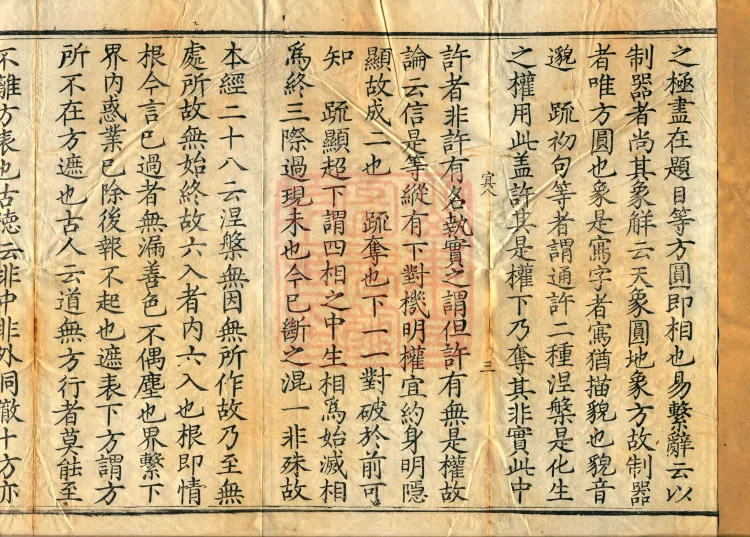 之極盡在題目等方圓即相也易繫辭云以
制器者尚其象解云天象圓地象方故制器
者唯方圓也象是寫字者寫猶描貌也貌音
邈　䟽初句等者謂通許二種涅槃是化生
之權用此盖許其是權下乃奪其非實此中
三
許者非許有名執實之謂但許有無是權故
論云信是等縱有下對機明權宜約身明隱
顯故成二也　䟽奪也下一一對破於前可
知　䟽顯超下謂四相之中生相爲始滅相
爲終三際過現未也今已斷之混一非殊故
本經二十八云涅槃無因無所作故乃至無
處所故無始終故六入者內六入也根即情
根今言已過者無漏善色不偶塵也界繫下
界內惑業已除後報不起也遮表下方謂方
所不在方遮也古人云道無方行者莫能至
不離方表也古德云非中非外同徹十方亦